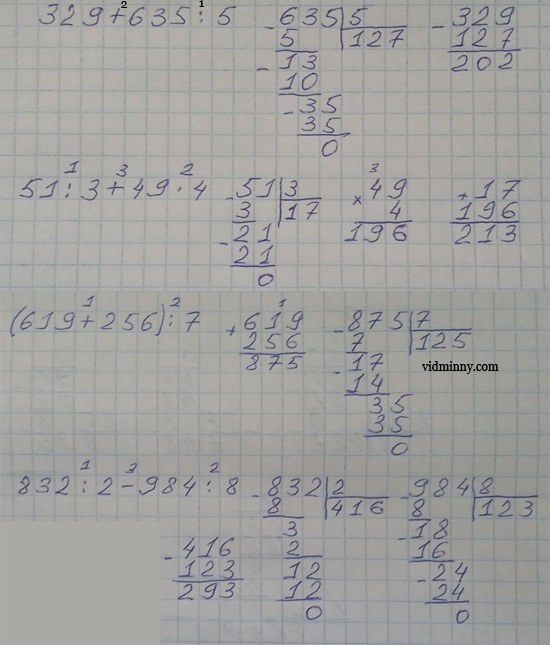 329 + 635 : 5
2 1
- 635 | 5
5 | 127
- 13
10
- 35
35
0
- 329
127
202
51 : 3 + 49 · 4
1 3 2
- 51 | 3
3 | 17
- 21
21
0
3
× 49
4
196
+ 17
196
213
(619 + 256) : 7
1 2
1
+ 619
256
875
- 875 | 7
7 | 125
- 17
14
35
35
0
vidminny.com
832 : 2 - 984 : 8
1 3 2
- 832 | 2
8 | 416
3
2
12
12
0
- 984 | 8
8 | 123
- 18
16
- 24
24
0
- 416
123
293